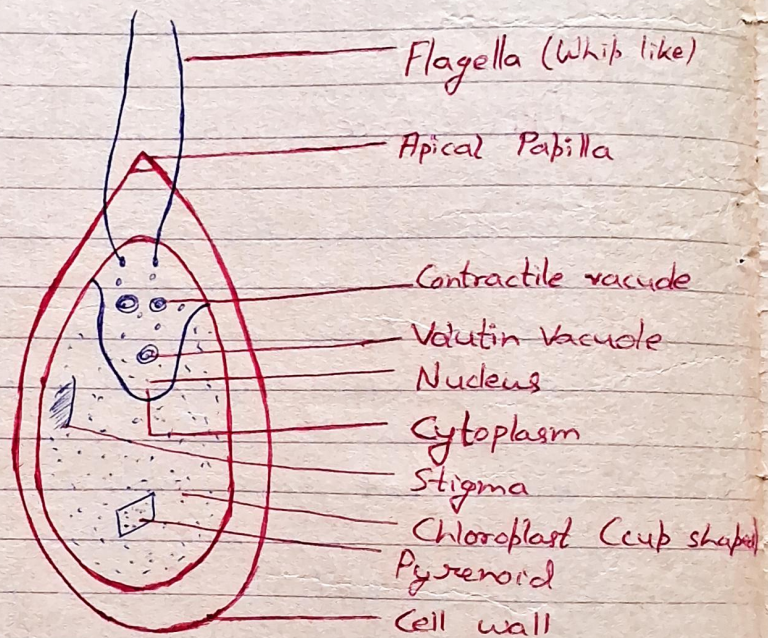 Flagella (Whip like)
Apical Papilla
Contractile vacuole
Volutin Vacuole
Nucleus
Cytoplasm
Stigma
Chloroplast (cup shaped)
Pyrenoid
Cell wall